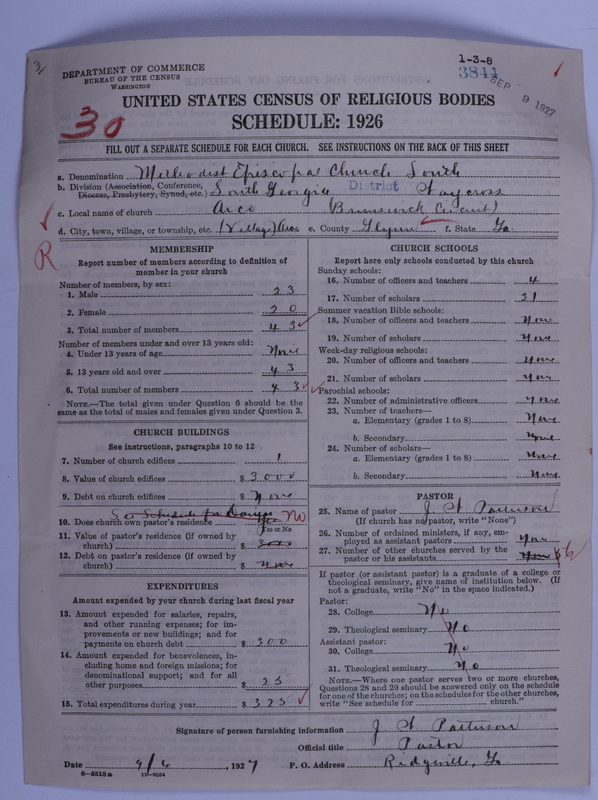 1-3-8
3844
SEP 9 1927
DEPARTMENT OF COMMERCE
BUREAU OF THE CENSUS
WASHINGTON
UNITED STATES CENSUS OF RELIGIOUS BODIES
30
SCHEDULE: 1926
FILL OUT A SEPARATE SCHEDULE FOR EACH CHURCH. SEE INSTRUCTIONS ON THE BACK OF THIS SHEET
a. Denomination Methodist Episcopal Church South
b. Division (Association, Conference, Diocese, Presbytery, Synod, etc.) South Georgia District Waycross
c. Local name of church Arco (Brunswick Circuit)
d. City, town, village, or township, etc. (Village) Arco e. County Glynn f. State Ga.
R
MEMBERSHIP
Report number of members according to definition of member in your church
Number of members, by sex:
1. Male 23
2. Female 20
3. Total number of members 43
Number of members under and over 13 years old:
4. Under 13 years of age None
5. 13 years old and over 43
6. Total number of members 43
NOTE.—The total given under Question 6 should be
same as the total of males and females given under Question 3.
CHURCH BUILDINGS
See instructions, paragraphs 10 to 12
7. Number of church edifices 1
8. Value of church edifices $3000
9. Debt on church edifices $None
See Schedule for
10. Does church own pastor's residence No
Yes or No
11. Value of pastor's residence (if owned by
church) $
12. Debt on pastor's residence (if owned by
church) $
EXPENDITURES
Amount expended by your church during last fiscal year
13. Amount expended for salaries, repairs,
and other running expenses; for im-
provements or new buildings; and for
payments on church debt $300
14. Amount expended for benevolences, in-
cluding home and foreign missions; for
denominational support; and for all
other purposes $25
15. Total expenditures during year $325
CHURCH SCHOOLS
Report here only schools conducted by this church
Sunday schools:
16. Number of officers and teachers 4
17. Number of scholars 31
Summer vacation Bible schools:
18. Number of officers and teachers None
19. Number of scholars None
Week-day religious schools:
20. Number of officers and teachers None
21. Number of scholars None
Parochial schools:
22. Number of administrative officers None
23. Number of teachers—
a. Elementary (grades 1 to 8) None
b. Secondary None
24. Number of scholars—
a. Elementary (grades 1 to 8) None
b. Secondary None
PASTOR
25. Name of pastor J. A. Patterson
(If church has no pastor, write "None")
26. Number of ordained ministers, if any, em-
ployed as assistant pastors None
27. Number of other churches served by the
pastor or his assistants 6
If pastor (or assistant pastor) is a graduate of a college or
theological seminary, give name of institution below. (If
not a graduate, write "No" in the space indicated.)
Pastor:
28. College No
29. Theological seminary No
Assistant pastor:
30. College No
31. Theological seminary No
NOTE.—Where one pastor serves two or more churches,
Questions 28 and 29 should be answered only on the schedule
for one of the churches; on the schedules for the other churches,
write "See schedule for church."
Signature of person furnishing information J. A. Patterson
Official title Pastor
Date 9/6, 1927 P. O. Address Ridgeville, Ga
8-5518a 11-9034